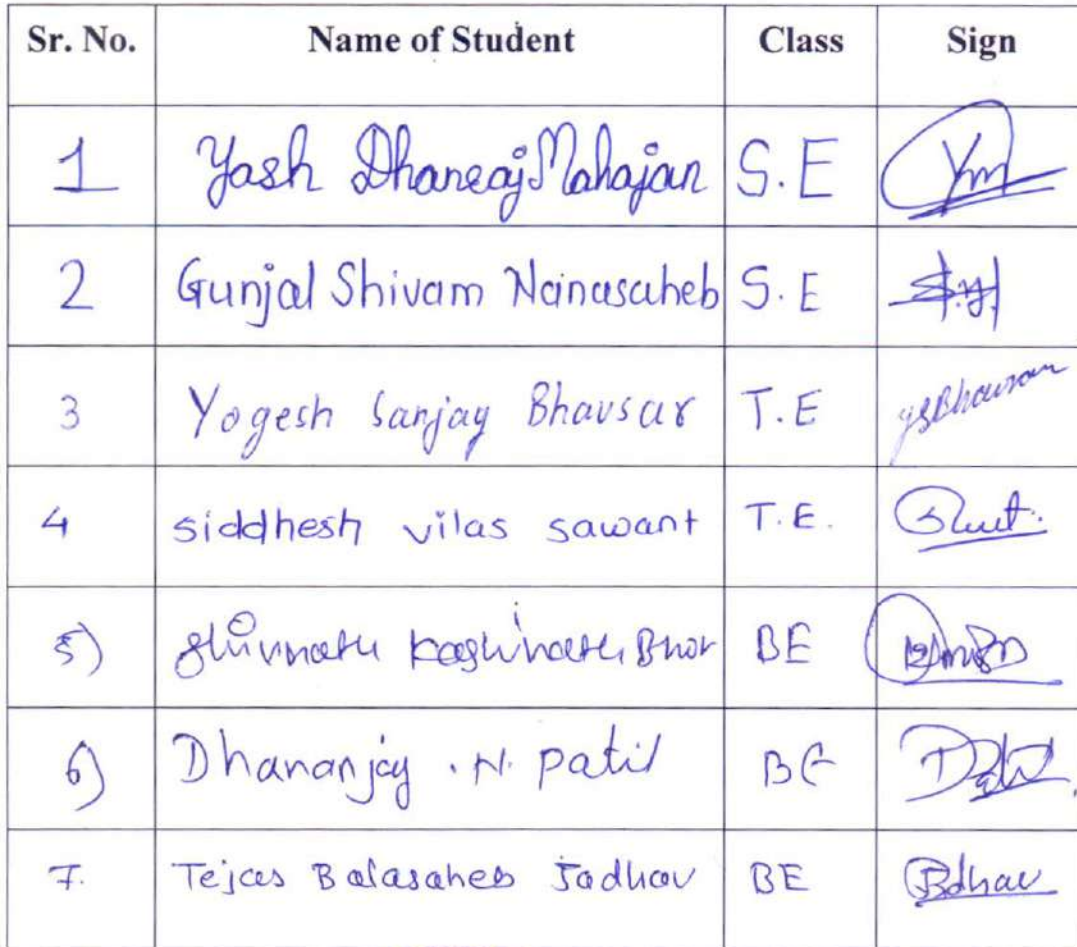 Sr. No. Name of Student Class Sign
1 Yash Dhanraj Mahajan S.E Ym
2 Gunjal Shivam Nanasaheb S.E
3 Yogesh Sanjay Bhavsar T.E YSBhavsar
4 siddhesh vilas sawant T.E.
5) Shivnath Kashinath Bhor BE
6) Dhananjay . N. Patil BE
7. Tejas Balasaheb Jadhav BE